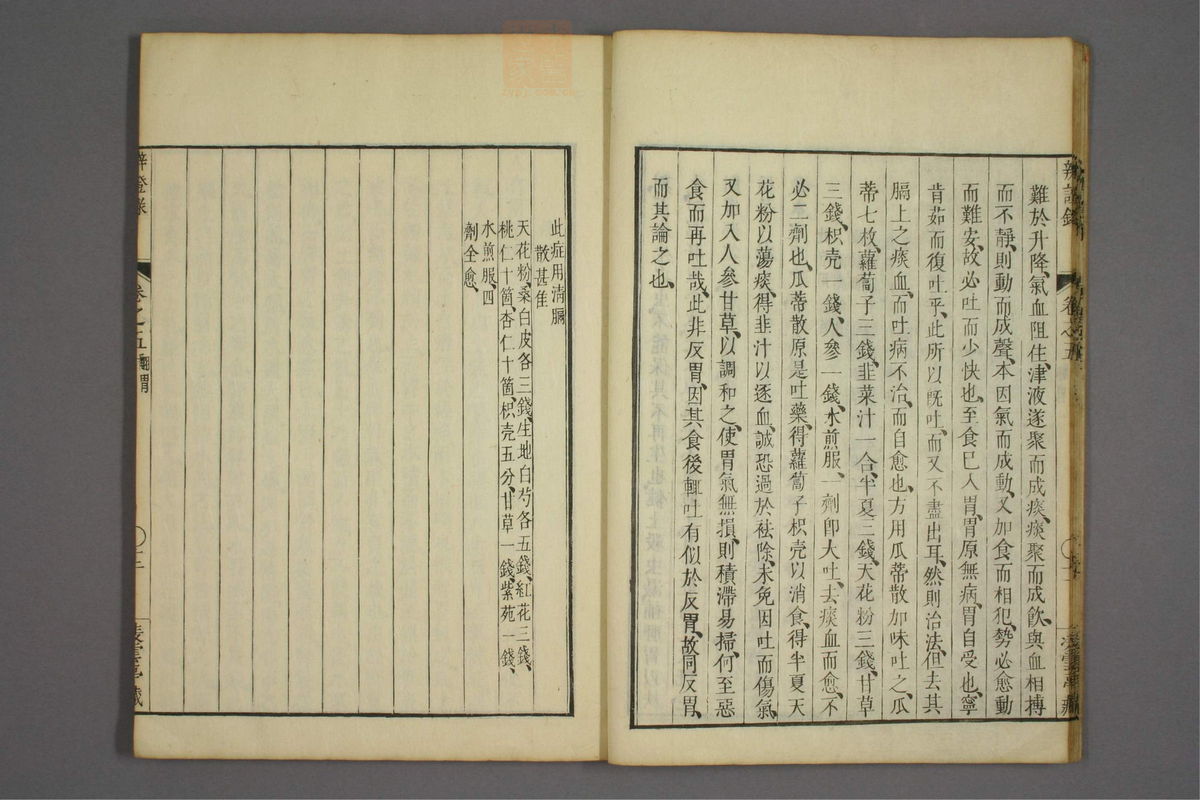 難於升降、氣血阻住、津液遂聚而成痰、痰聚而成飲、與血相搏
而不靜、則動而成聲、本因氣而成動、又加食而相犯、勢必愈動
而難安、故必吐而少快也、至食已入胃、胃原無病、胃自受也、寧
肯茹而復吐乎、此所以旣吐、而又不盡出耳、然則治法、但去其
膈上之痰血、而吐病不治、而自愈也、方用瓜蒂散加味吐之、瓜
蒂七枚、蘿蔔子三錢、韭菜汁一合、半夏三錢、天花粉三錢、甘草
三錢、枳壳一錢、人參一錢、水煎服、一劑卽大吐、去痰血而愈、不
必二劑也、瓜蒂散原是吐藥、得蘿蔔子枳壳以消食、得半夏天
花粉以蕩痰、得韭汁以逐血、誠恐過於袪除、未免因吐而傷氣、
又加入人參甘草、以調和之、使胃氣無損、則積滯易掃、何至惡
食而再吐哉、此非反胃、因其食後輒吐有似於反胃、故同反胃、
而其論之也、
此症用淸膈
散甚佳
天花粉、桑白皮各三錢、生地白芍各五錢、紅花三錢、
桃仁十箇、杏仁十箇、枳壳五分、甘草一錢、紫苑一錢、
水煎服、四
劑全愈、
卷之五 翻胃